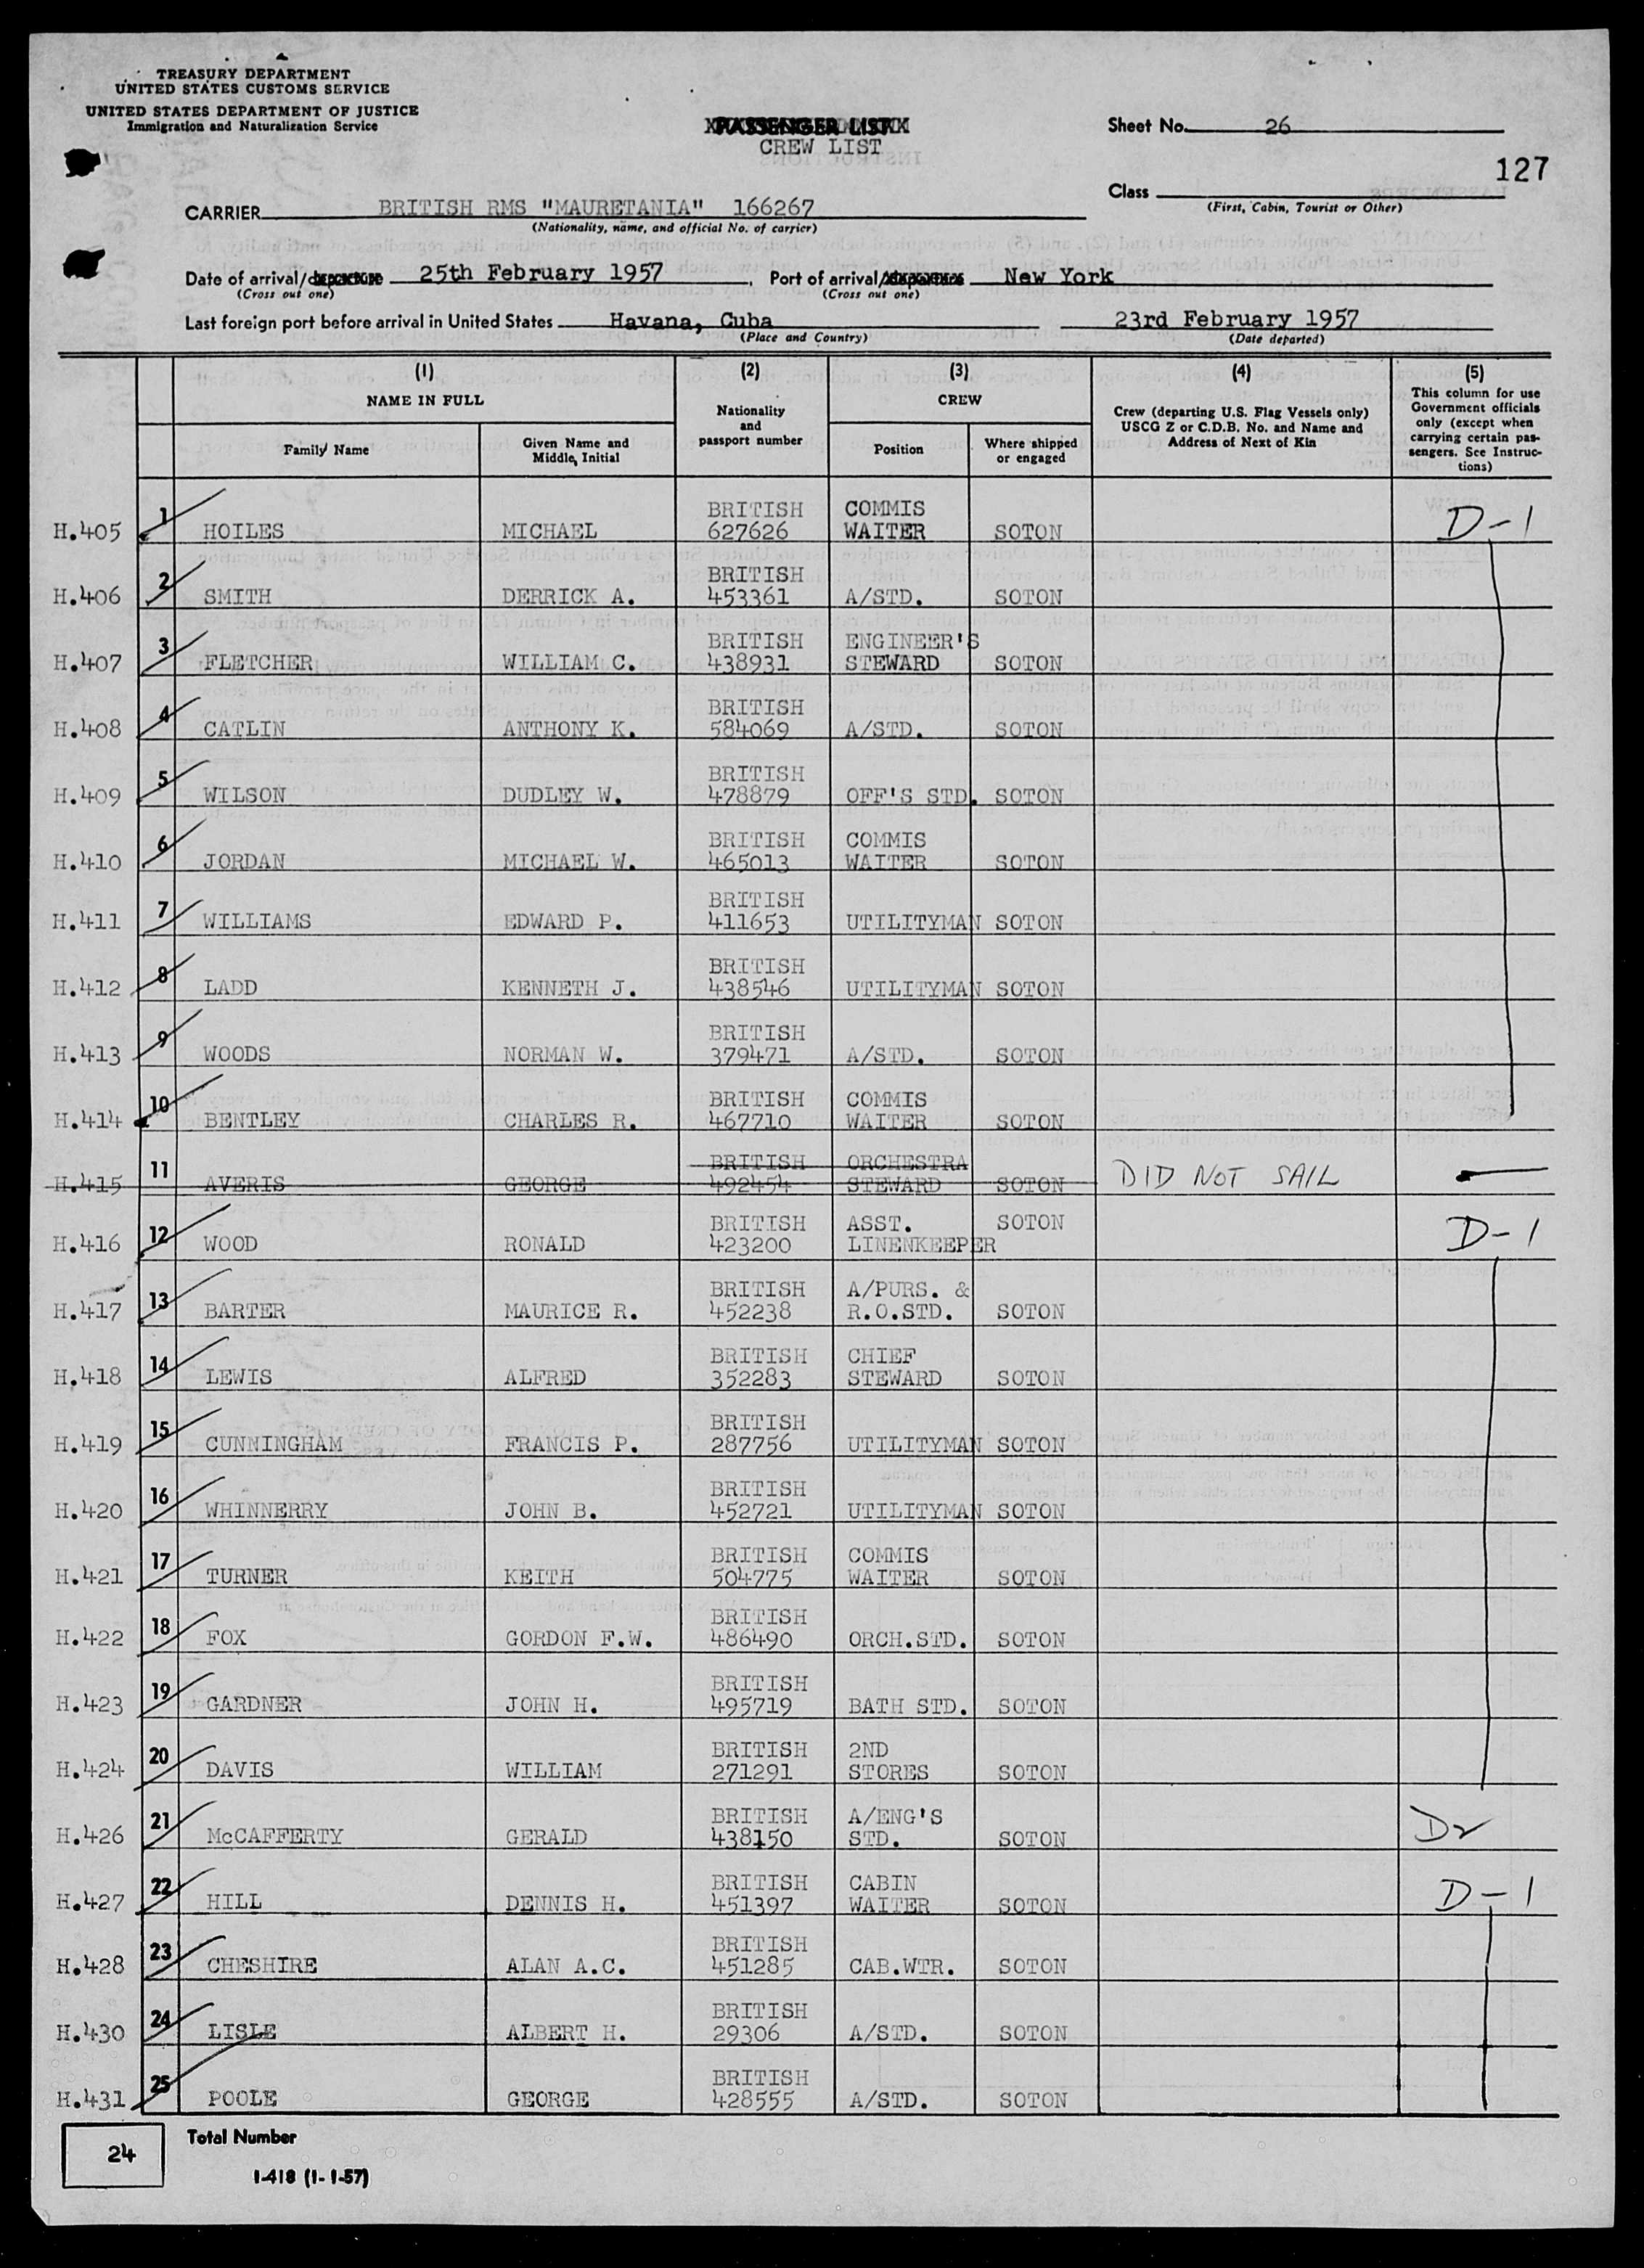 TREASURY DEPARTMENT
UNITED STATES CUSTOMS SERVICE
UNITED STATES DEPARTMENT OF JUSTICE
Immigration and Naturalization Service
PASSENGER LIST
CREW LIST
Sheet No. 26
127
Class
(First, Cabin, Tourist or Other)
CARRIER BRITISH RMS "MAURETANIA" 166267
(Nationality, name, and official No. of carrier)
Date of arrival/departure 25th February 1957 Port of arrival/departure New York
(Cross out one) (Cross out one)
Last foreign port before arrival in United States Havana, Cuba 23rd February 1957
(Place and Country) (Date departed)
(1) (2) (3) (4) (5)
NAME IN FULL
Nationality
and
passport number
CREW
Crew (departing U.S. Flag Vessels only)
USCG Z or C.D.B. No. and Name and
Address of Next of Kin
This column for use
Government officials
only (except when
carrying certain pas-
sengers. See Instruc-
tions)
Family Name
Given Name and
Middle Initial
Position
Where shipped
or engaged
1 BRITISH COMMIS
H.405 HOILES MICHAEL 627626 WAITER SOTON D-1
2 BRITISH
H.406 SMITH DERRICK A. 453361 A/STD. SOTON
3 BRITISH ENGINEER'S
H.407 FLETCHER WILLIAM C. 438931 STEWARD SOTON
4 BRITISH
H.408 CATLIN ANTHONY K. 584069 A/STD. SOTON
5 BRITISH
H.409 WILSON DUDLEY W. 478879 OFF'S STD. SOTON
6 BRITISH COMMIS
H.410 JORDAN MICHAEL W. 465013 WAITER SOTON
7 BRITISH
H.411 WILLIAMS EDWARD P. 411653 UTILITYMAN SOTON
8 BRITISH
H.412 LADD KENNETH J. 438546 UTILITYMAN SOTON
9 BRITISH
H.413 WOODS NORMAN W. 379471 A/STD. SOTON
10 BRITISH COMMIS
H.414 BENTLEY CHARLES R. 467710 WAITER SOTON
11 BRITISH ORCHESTRA
H.415 AVERIS GEORGE 492454 STEWARD SOTON DID NOT SAIL
12 BRITISH ASST. SOTON
H.416 WOOD RONALD 423200 LINENKEEPER D-1
13 BRITISH A/PURS. &
H.417 BARTER MAURICE R. 452238 R.O.STD. SOTON
14 BRITISH CHIEF
H.418 LEWIS ALFRED 352283 STEWARD SOTON
15 BRITISH
H.419 CUNNINGHAM FRANCIS P. 287756 UTILITYMAN SOTON
16 BRITISH
H.420 WHINNERRY JOHN B. 452721 UTILITYMAN SOTON
17 BRITISH COMMIS
H.421 TURNER KEITH 504775 WAITER SOTON
18 BRITISH
H.422 FOX GORDON F.W. 486490 ORCH.STD. SOTON
19 BRITISH
H.423 GARDNER JOHN H. 495719 BATH STD. SOTON
20 BRITISH 2ND
H.424 DAVIS WILLIAM 271291 STORES SOTON
21 BRITISH A/ENG'S
H.426 McCAFFERTY GERALD 438150 STD. SOTON D2
22 BRITISH CABIN
H.427 HILL DENNIS H. 451397 WAITER SOTON D-1
23 BRITISH
H.428 CHESHIRE ALAN A.C. 451285 CAB.WTR. SOTON
24 BRITISH
H.430 LISLE ALBERT H. 29306 A/STD. SOTON
25 BRITISH
H.431 POOLE GEORGE 428555 A/STD. SOTON
24 Total Number
I-418 (1-1-57)